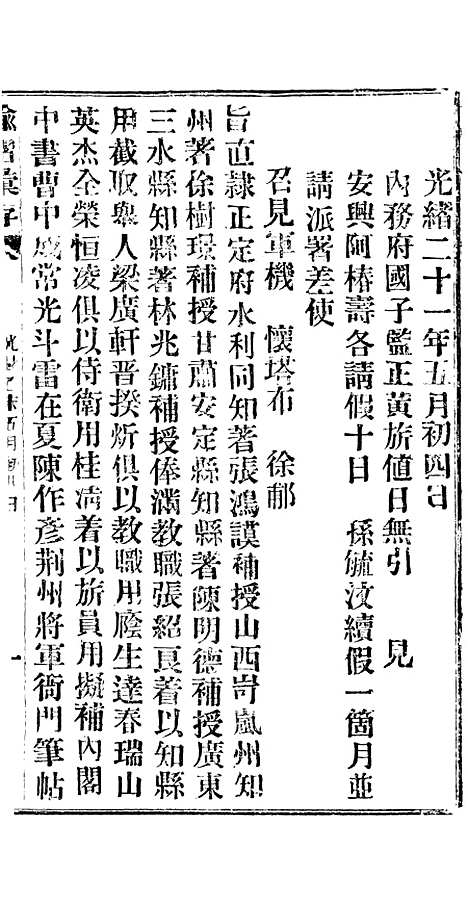 光緒二十一年五月初四日
內務府國子監正黃旂値日無引　見
安興阿椿壽各請假十日　孫毓汶續假一箇月並
請派署差使
召見軍機　懷塔布　徐郙
旨直隸正定府水利同知著張鴻謨補授山西岢嵐州知
州著徐樹璟補授甘肅安定縣知縣著陳明德補授廣東
三水縣知縣著林兆鏞補授俸滿教職張紹良着以知縣
用截取舉人梁廣軒晉揆炘俱以教職用廕生達春瑞山
英杰全榮恒凌俱以侍衛用桂淸着以旂員用擬補內閣
中書曹中成常光斗雷在夏陳作彥荆州將軍衙門筆帖
諭摺彙存
光緒乙未五月初四日
一